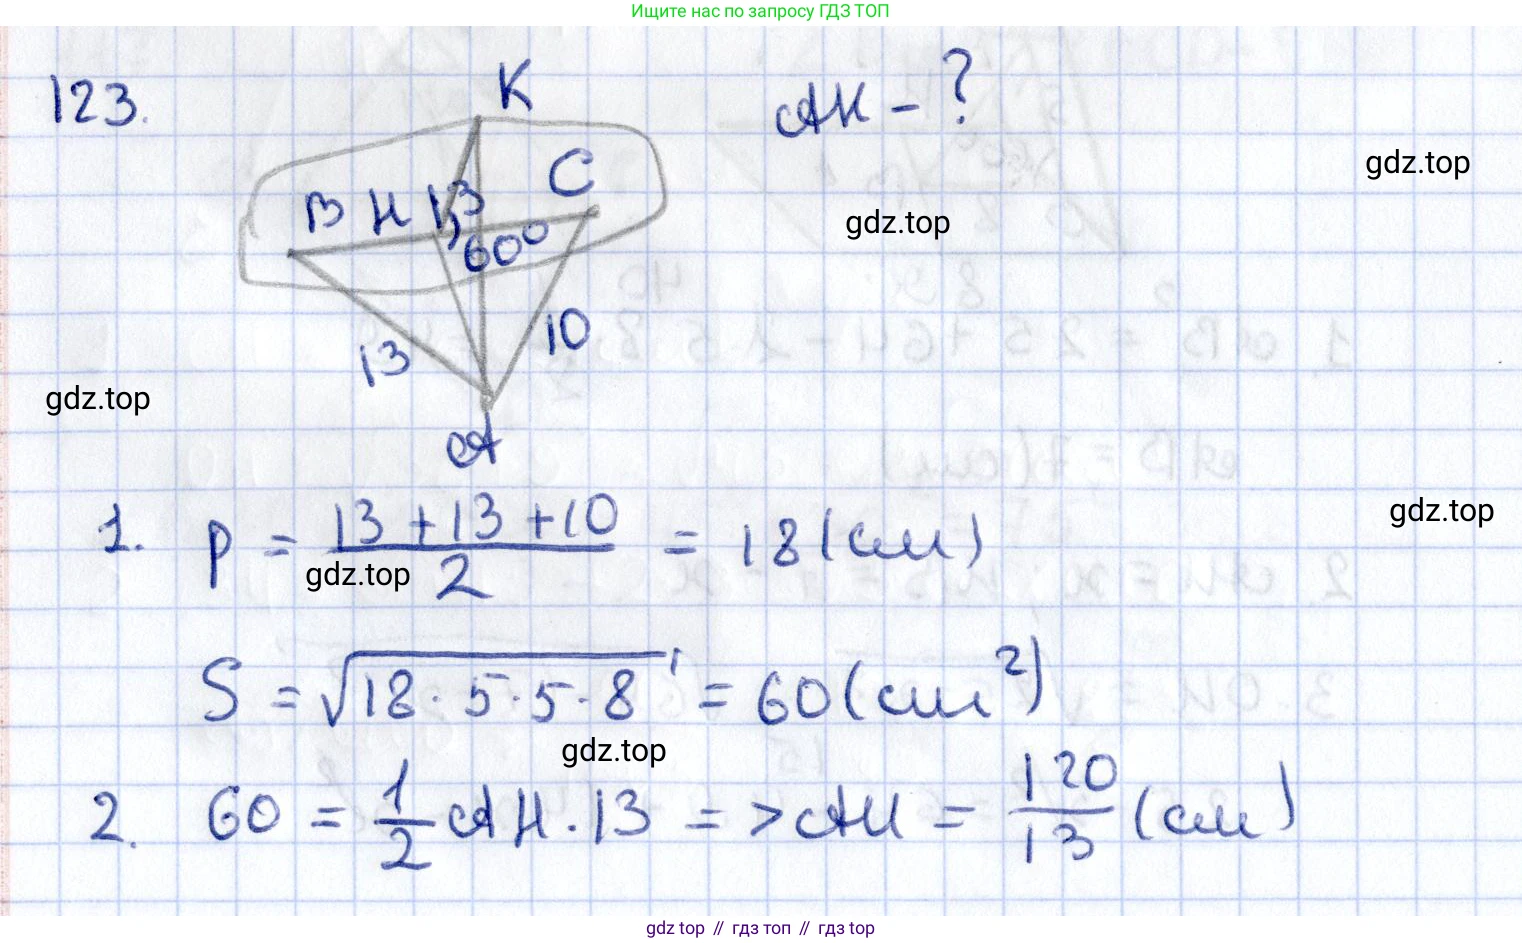 Ищите нас по запросу ГДЗ ТОП
123.
K
AK - ?
gdz.top
B H 13 C
gdz.top
60°
13
10
gdz.top
A
1. p = \frac{13 + 13 + 10}{2} = 18 (см)
gdz.top
gdz.top
S = √18 · 5 · 5 · 8 = 60 (см²)
gdz.top
2. 60 = \frac{1}{2} AH · 13 => AH = \frac{120}{13} (см)
gdz.top // гдз топ // гдз top